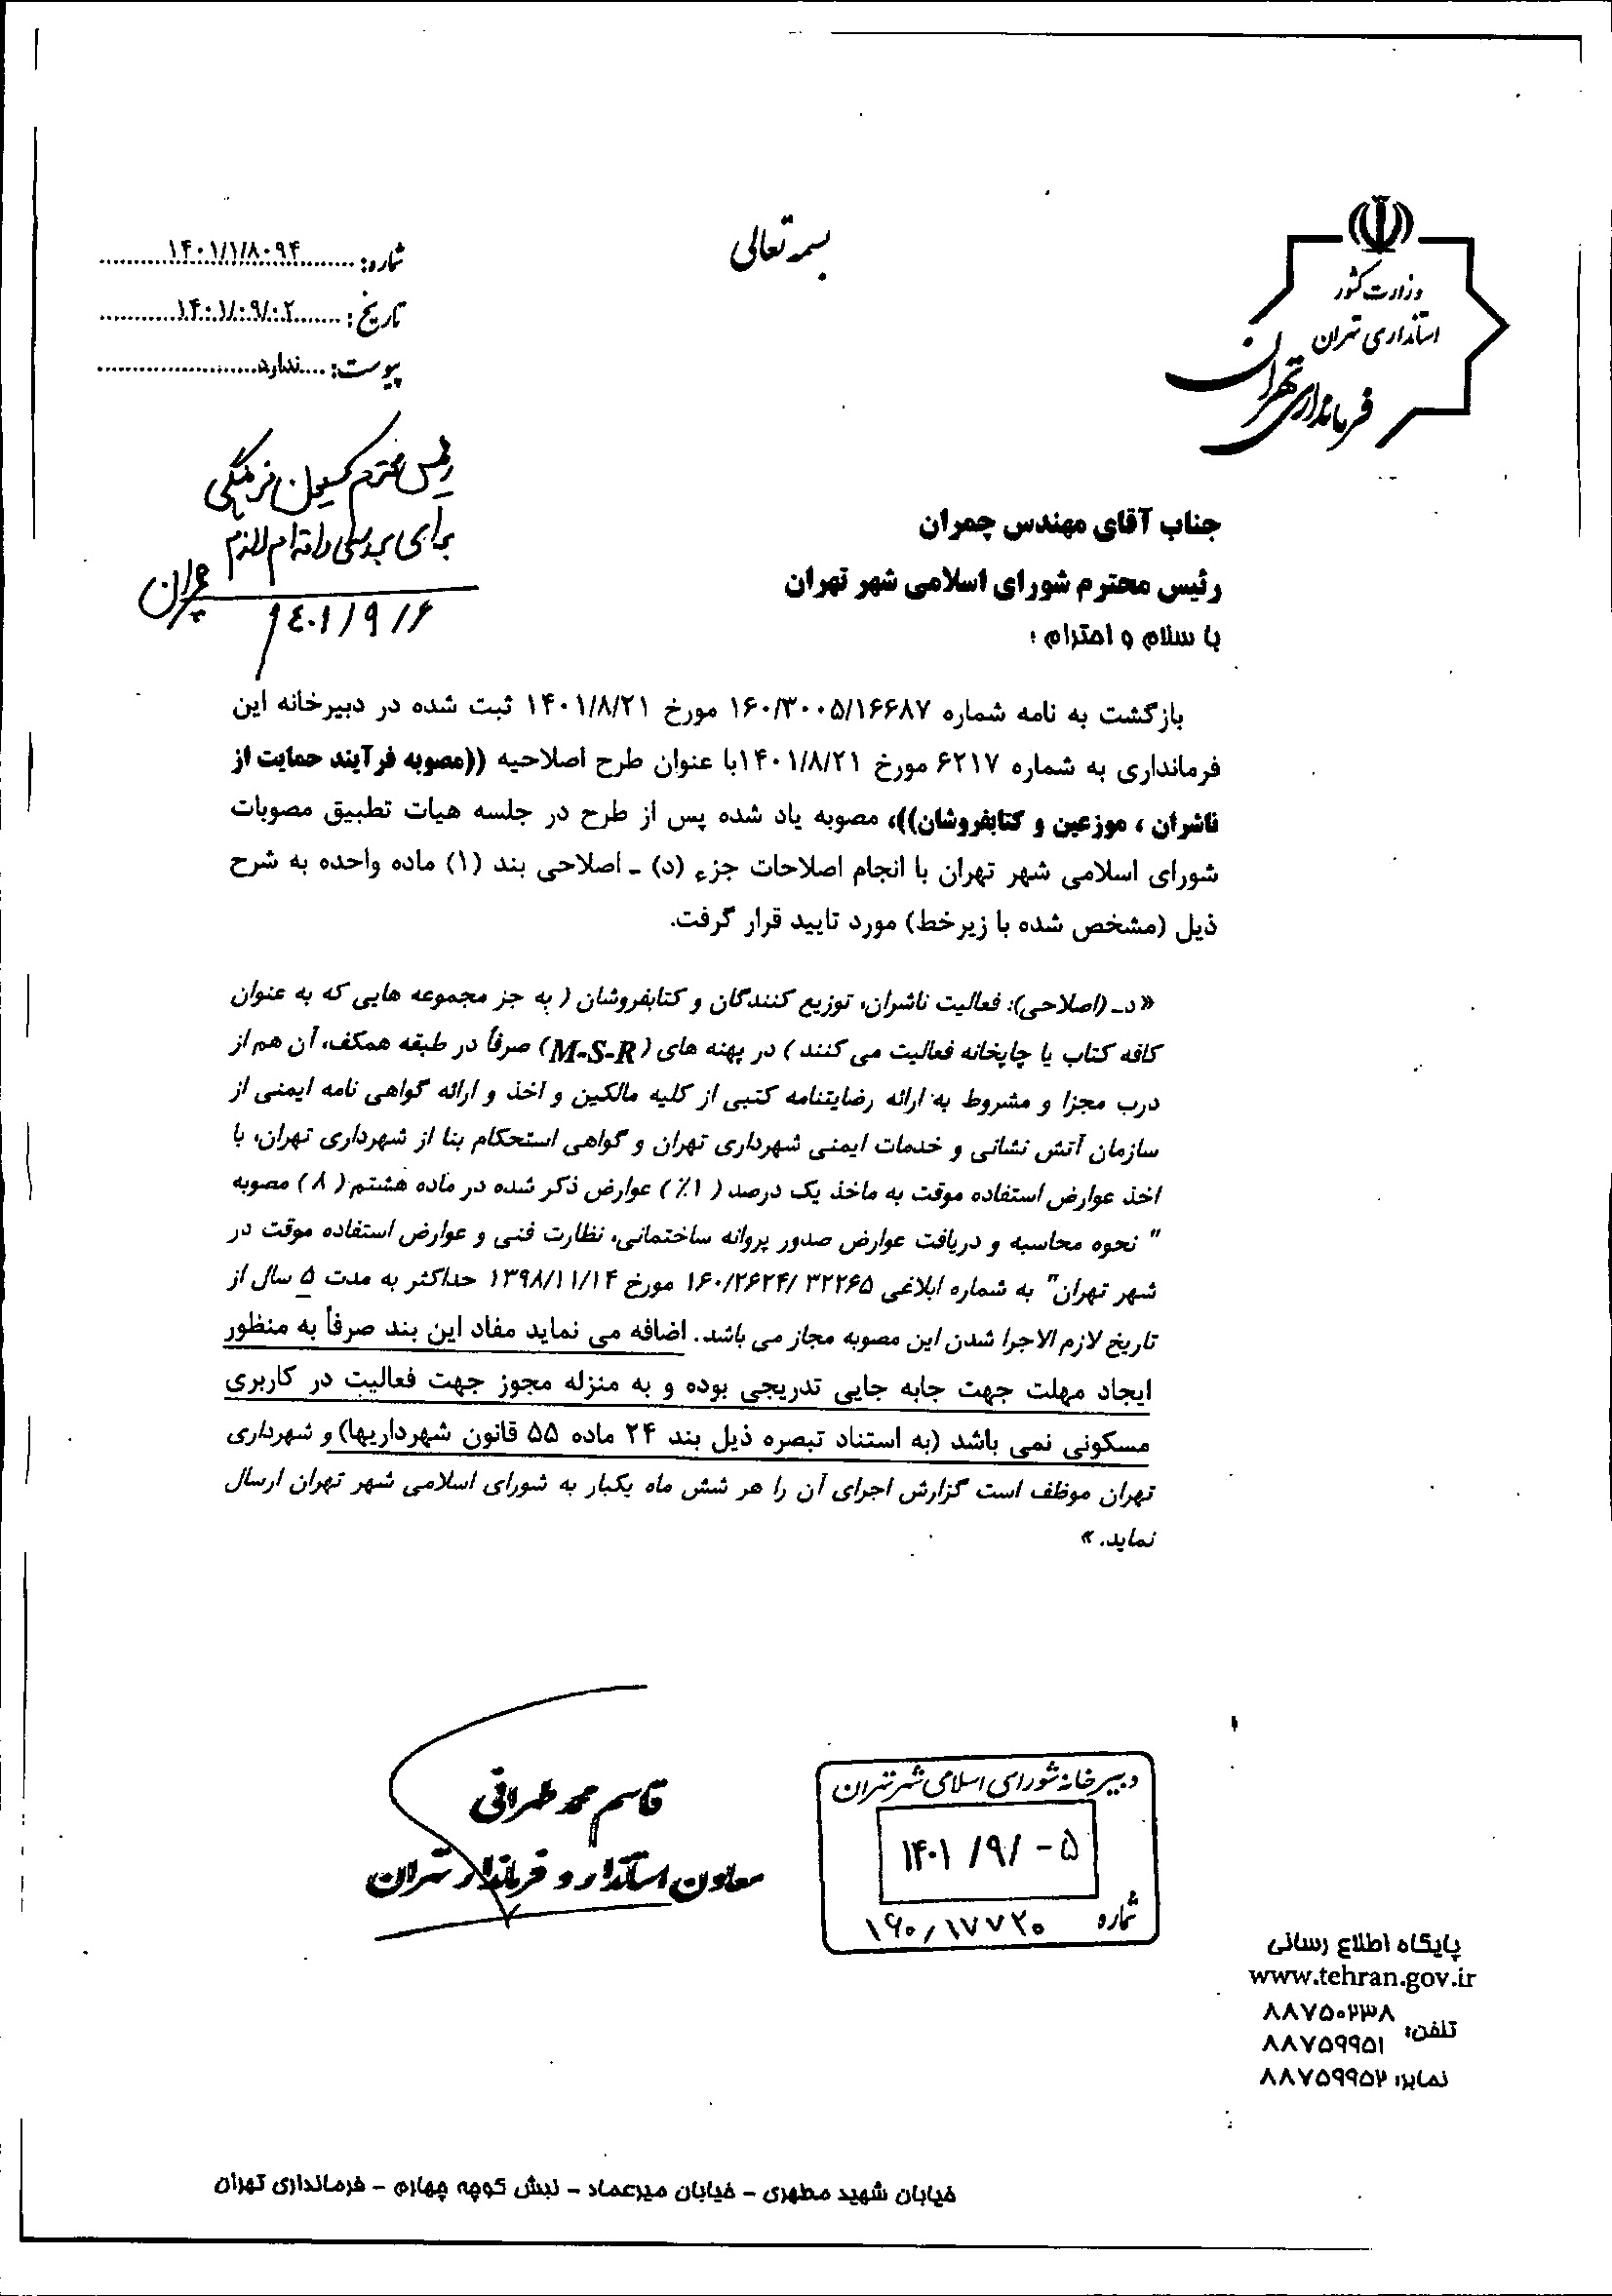 بسمه تعالی
وزارت کشور
استانداری تهران
فرمانداری تهران
شماره: ۱۴۰۱/۱/۸۰۹۴
تاریخ: ۱۴۰۱/۰۹/۰۲
پیوست: ندارد
رئیس محترم کمیسیون فرهنگی
برای بررسی و اقدام لازم
چمران
۱۴۰۱/۹/۶
جناب آقای مهندس چمران
رئیس محترم شورای اسلامی شهر تهران
با سلام و احترام ؛
بازگشت به نامه شماره ۱۶۰/۳۰۰۵/۱۶۶۸۷ مورخ ۱۴۰۱/۸/۲۱ ثبت شده در دبیرخانه این
فرمانداری به شماره ۶۲۱۷ مورخ ۱۴۰۱/۸/۲۱با عنوان طرح اصلاحیه ((مصوبه فرآیند حمایت از
ناشران ، موزعین و کتابفروشان))، مصوبه یاد شده پس از طرح در جلسه هیات تطبیق مصوبات
شورای اسلامی شهر تهران با انجام اصلاحات جزء (د) ـ اصلاحی بند (۱) ماده واحده به شرح
ذیل (مشخص شده با زیرخط) مورد تایید قرار گرفت.
«د- (اصلاحی): فعالیت ناشران، توزیع کنندگان و کتابفروشان ( به جز مجموعه هایی که به عنوان
کافه کتاب یا چاپخانه فعالیت می کنند ) در پهنه های (M-S-R) صرفاً در طبقه همکف، آن هم از
درب مجزا و مشروط به ارائه رضایتنامه کتبی از کلیه مالکین و اخذ و ارائه گواهی نامه ایمنی از
سازمان آتش نشانی و خدمات ایمنی شهرداری تهران و گواهی استحکام بنا از شهرداری تهران، با
اخذ عوارض استفاده موقت به ماخذ یک درصد ( ۱٪ ) عوارض ذکر شده در ماده هشتم ( ۸ ) مصوبه
" نحوه محاسبه و دریافت عوارض صدور پروانه ساختمانی، نظارت فنی و عوارض استفاده موقت در
شهر تهران" به شماره ابلاغی ۱۶۰/۲۶۲۴/۳۲۲۶۵ مورخ ۱۳۹۸/۱۱/۱۴ حداکثر به مدت ۵ سال از
تاریخ لازم الاجرا شدن این مصوبه مجاز می باشد. اضافه می نماید مفاد این بند صرفاً به منظور
ایجاد مهلت جهت جابه جایی تدریجی بوده و به منزله مجوز جهت فعالیت در کاربری
مسکونی نمی باشد (به استناد تبصره ذیل بند ۲۴ ماده ۵۵ قانون شهرداریها) و شهرداری
تهران موظف است گزارش اجرای آن را هر شش ماه یکبار به شورای اسلامی شهر تهران ارسال
نماید. »
قاسم محمد طهرانی
معاون استاندار و فرماندار تهران
دبیرخانه شورای اسلامی شهر تهران
۱۴۰۱ /۹/ -۵
شماره ۱۶۰/۱۷۷۲۰
پایگاه اطلاع رسانی
www.tehran.gov.ir
تلفن: ۸۸۷۵۰۲۳۸
۸۸۷۵۹۹۵۱
نمابر: ۸۸۷۵۹۹۵۲
خیابان شهید مطهری - خیابان میرعماد - نبش کوچه چهارم - فرمانداری تهران